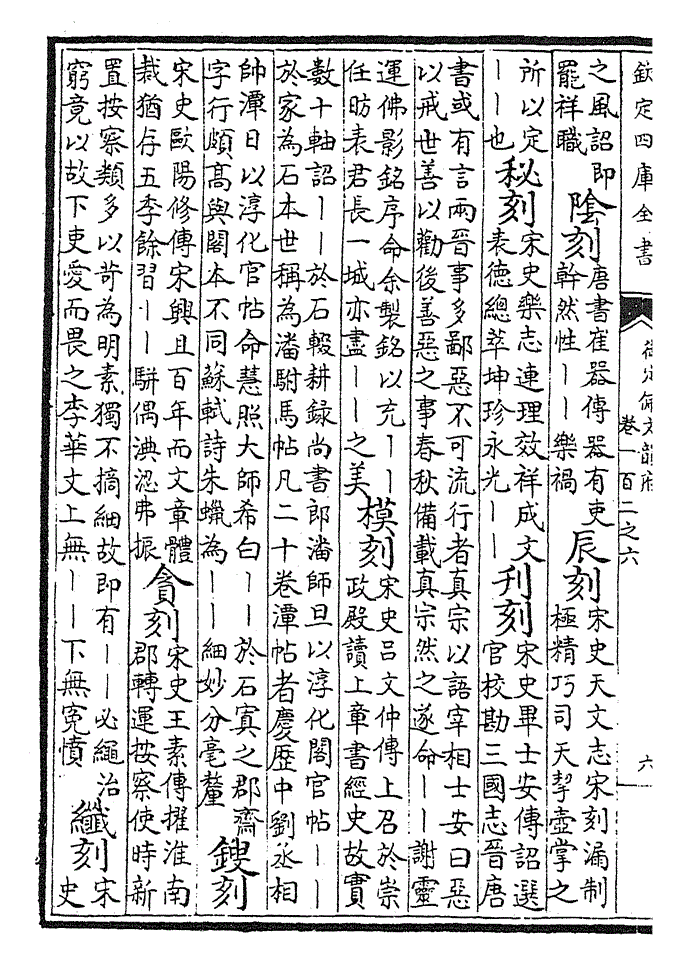 欽定四庫全書
御定佩文韻府
卷一百二之六
六
之風詔即
罷祥職
陰刻
唐書崔器傳器有吏
幹然性丨丨樂禍
辰刻
宋史天文志宋刻漏制
極精巧司天挈壺掌之
所以定
丨丨也
秘刻
宋史樂志連理效祥成文
表德總萃坤珍永光丨丨
刋刻
宋史畢士安傳詔選
官校勘三國志晉唐
書或有言兩晉事多鄙惡不可流行者真宗以語宰相士安曰惡
以戒世善以勸後善惡之事春秋備載真宗然之遂命丨丨謝靈
運佛影銘序命余製銘以充丨丨
任昉表君長一城亦盡丨丨之美
模刻
宋史呂文仲傳上召於崇
政殿讀上章書經史故實
數十軸詔丨丨於石輟耕録尚書郎潘師旦以淳化閣官帖丨丨
於家為石本世稱為潘駙馬帖凡二十卷潭帖者慶歷中劉丞相
帥潭日以淳化官帖命慧照大師希白丨丨於石寘之郡齋
字行頗髙與閣本不同蘇軾詩朱蠟為丨丨細妙分毫釐
鋟刻
宋史歐陽修傳宋興且百年而文章體
裁猶存五季餘習丨丨駢偶淟涊弗振
貪刻
宋史王素傳擢淮南
郡轉運按察使時新
置按察類多以苛為明素獨不摘細故即有丨丨必繩治
窮竟以故下吏愛而畏之李華文上無丨丨下無冤憤
纖刻
宋
史